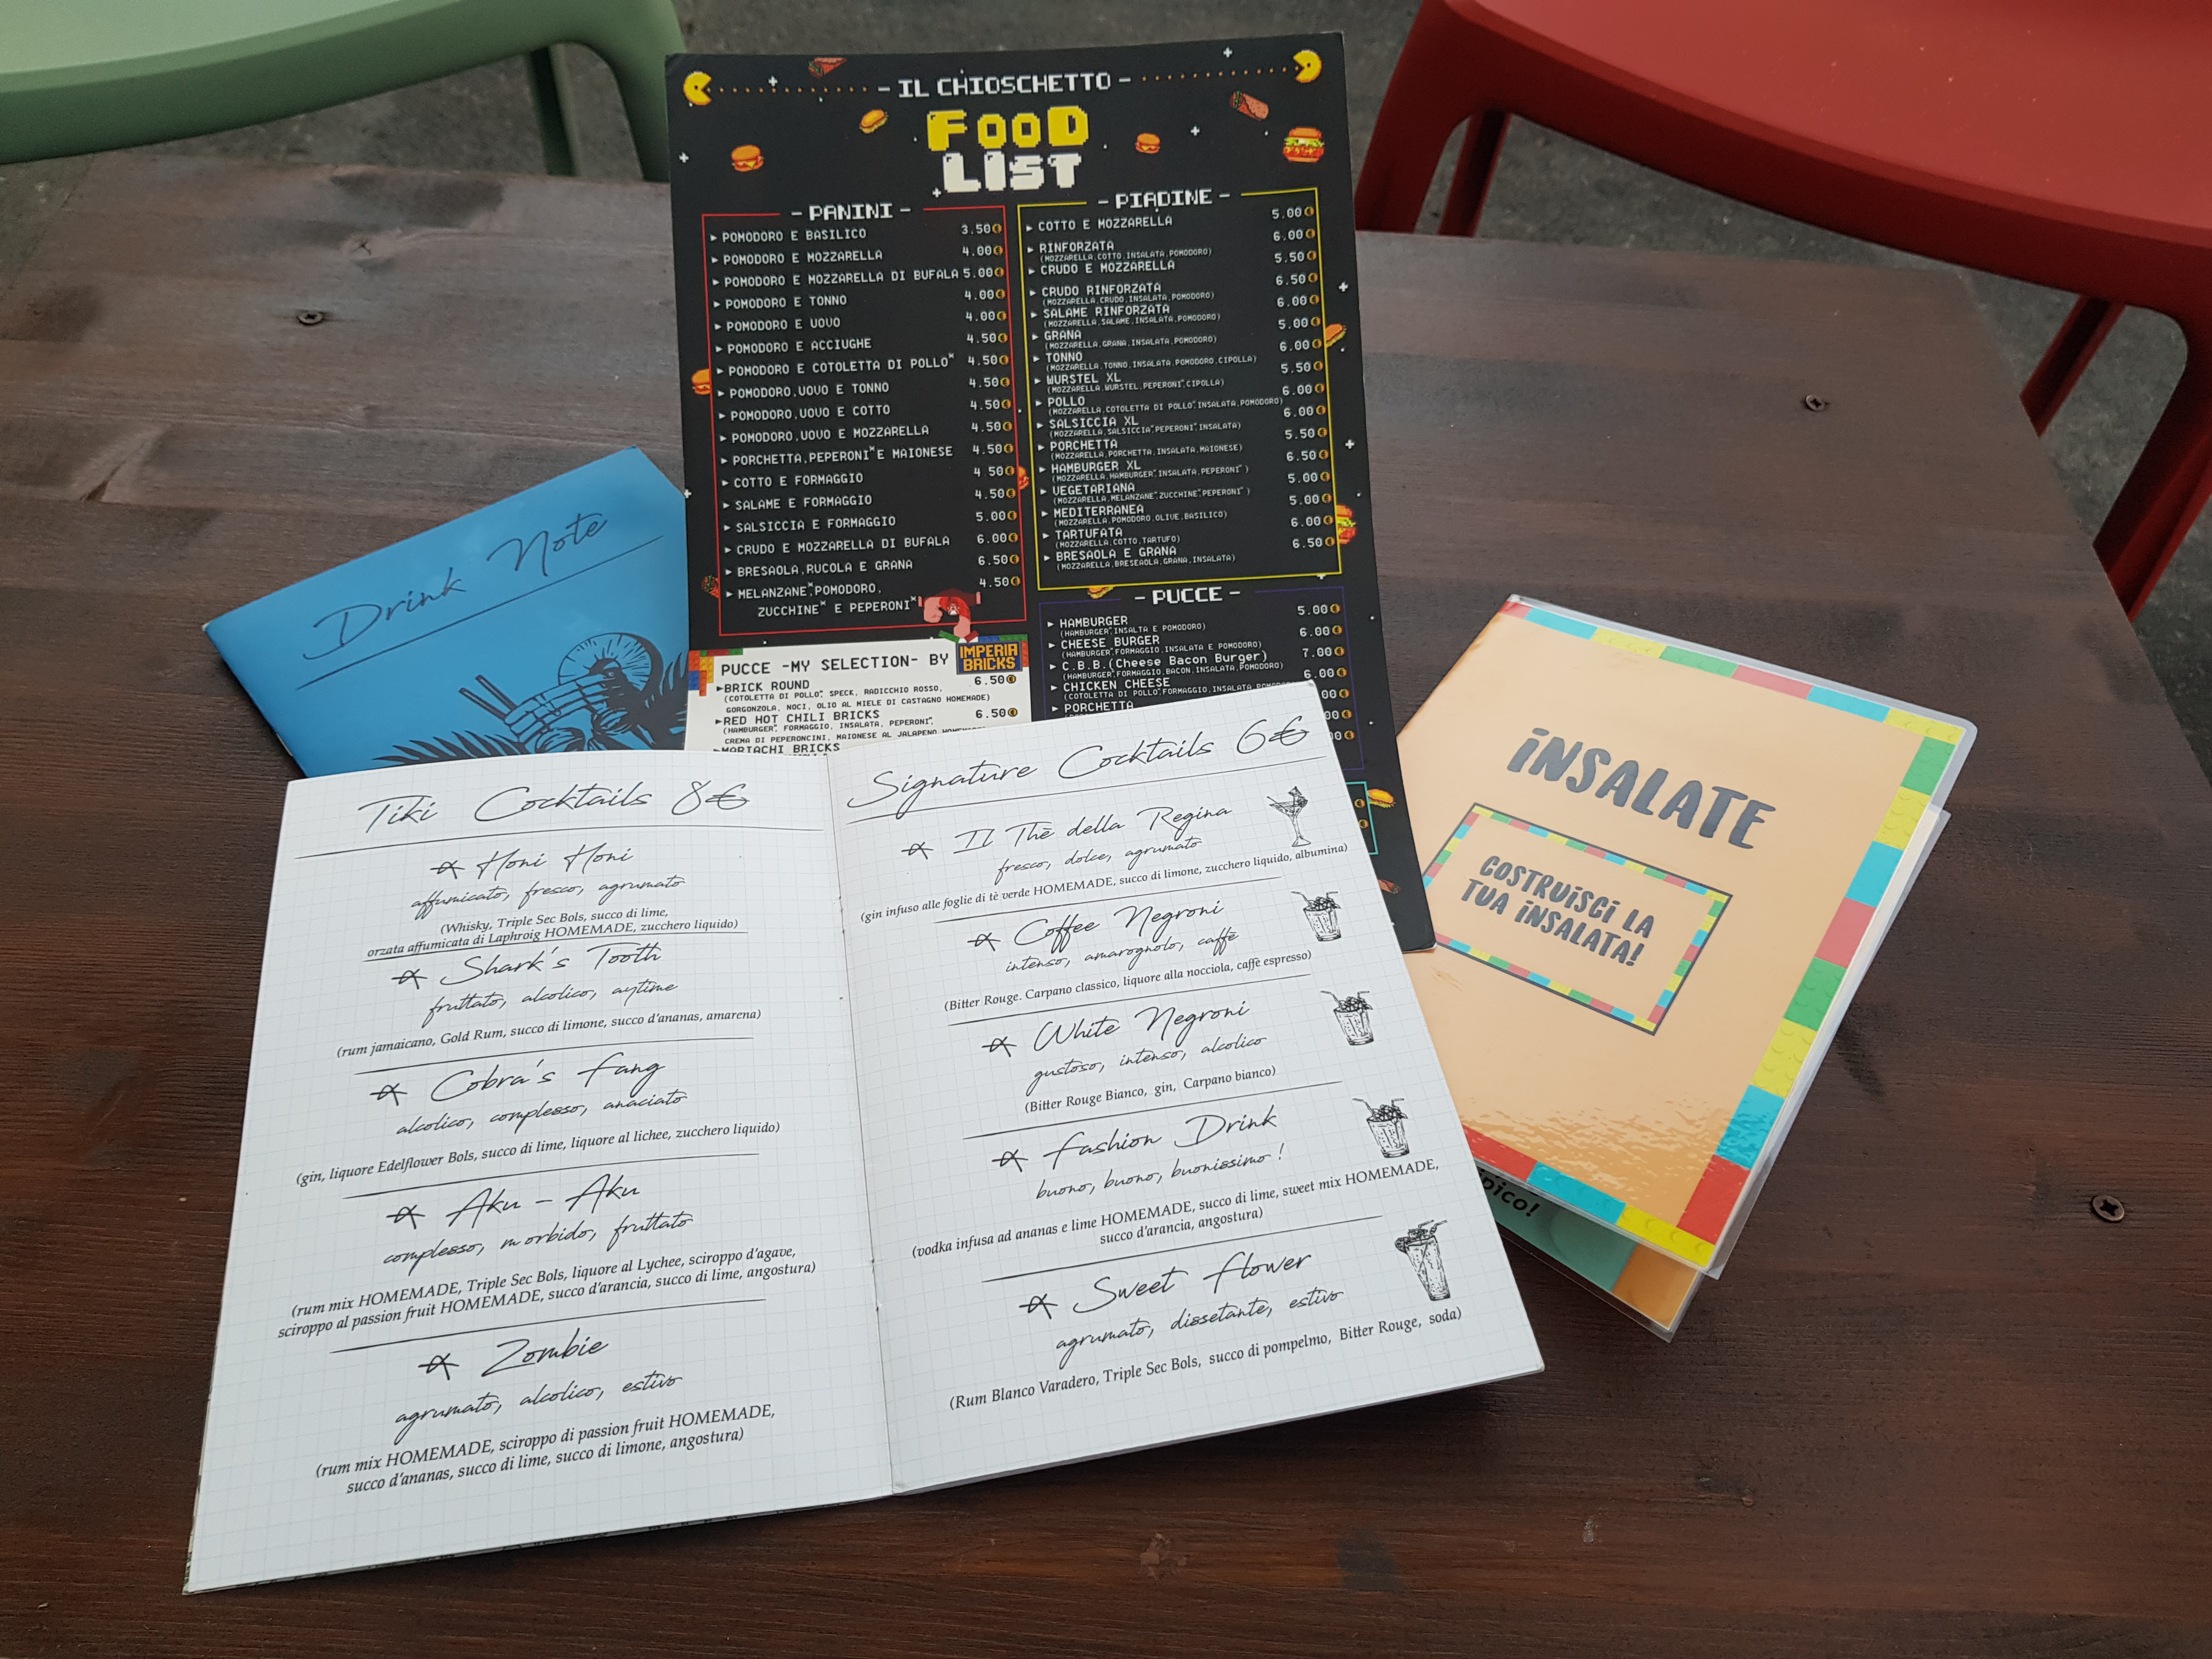 - IL CHIOSCHETTO -
FOOD
LIST
- PANINI -
► POMODORO E BASILICO 3.50€
► POMODORO E MOZZARELLA 4.00€
► POMODORO E MOZZARELLA DI BUFALA 5.00€
► POMODORO E TONNO 4.00€
► POMODORO E UOVO 4.00€
► POMODORO E ACCIUGHE 4.50€
► POMODORO E COTOLETTA DI POLLO* 4.50€
► POMODORO,UOVO E TONNO 4.50€
► POMODORO,UOVO E COTTO 4.50€
► POMODORO,UOVO E MOZZARELLA 4.50€
► PORCHETTA,PEPERONI*E MAIONESE 4.50€
► COTTO E FORMAGGIO 4 50€
► SALAME E FORMAGGIO 4.50€
► SALSICCIA E FORMAGGIO 5.00€
► CRUDO E MOZZARELLA DI BUFALA 6.00€
► BRESAOLA,RUCOLA E GRANA 6.50€
► MELANZANE*,POMODORO, 4.50€
ZUCCHINE* E PEPERONI*
PUCCE -MY SELECTION- BY IMPERIA BRICKS
►BRICK ROUND 6.50€
(COTOLETTA DI POLLO*, SPECK, RADICCHIO ROSSO,
GORGONZOLA, NOCI, OLIO AL MIELE DI CASTAGNO HOMEMADE)
►RED HOT CHILI BRICKS 6.50€
(HAMBURGER*, FORMAGGIO, INSALATA, PEPERONI*,
CREMA DI PEPERONCINI, MAIONESE AL JALAPENO
►MARIACHI BRICKS
- PIADINE -
► COTTO E MOZZARELLA 5.00€
► RINFORZATA 6.00€
(MOZZARELLA,COTTO,INSALATA,POMODORO)
► CRUDO E MOZZARELLA 5.50€
► CRUDO RINFORZATA 6.50€
(MOZZARELLA,CRUDO,INSALATA,POMODORO)
► SALAME RINFORZATA 6.00€
(MOZZARELLA,SALAME,INSALATA,POMODORO)
► GRANA 5.00€
(MOZZARELLA,GRANA,INSALATA,POMODORO)
► TONNO 6.00€
(MOZZARELLA,TONNO,INSALATA,POMODORO,CIPOLLA)
► WURSTEL XL 5.50€
(MOZZARELLA,WURSTEL,PEPERONI*,CIPOLLA)
► POLLO 6.00€
(MOZZARELLA,COTOLETTA DI POLLO*,INSALATA,POMODORO)
► SALSICCIA XL 6.00€
(MOZZARELLA,SALSICCIA*,PEPERONI*,INSALATA)
► PORCHETTA 5.50€
(MOZZARELLA,PORCHETTA,INSALATA,MAIONESE)
► HAMBURGER XL 6.50€
(MOZZARELLA,HAMBURGER*,INSALATA,PEPERONI*)
► VEGETARIANA 5.00€
(MOZZARELLA,MELANZANE*,ZUCCHINE*,PEPERONI*)
► MEDITERRANEA 5.00€
(MOZZARELLA,POMODORO,OLIVE,BASILICO)
► TARTUFATA 6.00€
(MOZZARELLA,COTTO,TARTUFO)
► BRESAOLA E GRANA 6.50€
(MOZZARELLA,BRESEAOLA,GRANA,INSALATA)
- PUCCE -
► HAMBURGER 5.00€
(HAMBURGER*,INSALTA E POMODORO)
► CHEESE BURGER 6.00€
(HAMBURGER*,FORMAGGIO,INSALATA E POMODORO)
► C.B.B.(Cheese Bacon Burger) 7.00€
(HAMBURGER*,FORMAGGIO,BACON,INSALATA,POMODORO)
► CHICKEN CHEESE 6.00€
(COTOLETTA DI POLLO*,FORMAGGIO,INSALATA,POMODORO)
► PORCHETTA
Drink Note
Tiki Cocktails 8€
Honi Honi
affumicato, fresco, agrumato
(Whisky, Triple Sec Bols, succo di lime,
orzata affumicata di Laphroig HOMEMADE, zucchero liquido)
Shark's Tooth
fruttato, alcolico, aytime
(rum jamaicano, Gold Rum, succo di limone, succo d'ananas, amarena)
Cobra's Fang
alcolico, complesso, anaciato
(gin, liquore Edelflower Bols, succo di lime, liquore al lichee, zucchero liquido)
Aku - Aku
complesso, morbido, fruttato
(rum mix HOMEMADE, Triple Sec Bols, liquore al Lychee, sciroppo d'agave,
sciroppo al passion fruit HOMEMADE, succo d'arancia, succo di lime, angostura)
Zombie
agrumato, alcolico, estivo
(rum mix HOMEMADE, sciroppo di passion fruit HOMEMADE,
succo d'ananas, succo di lime, succo di limone, angostura)
Signature Cocktails 6€
Il Thè della Regina
fresco, dolce, agrumato
(gin infuso alle foglie di tè verde HOMEMADE, succo di limone, zucchero liquido, albumina)
Coffee Negroni
intenso, amarognolo, caffè
(Bitter Rouge. Carpano classico, liquore alla nocciola, caffè espresso)
White Negroni
gustoso, intenso, alcolico
(Bitter Rouge Bianco, gin, Carpano bianco)
Fashion Drink
buono, buono, buonissimo!
(vodka infusa ad ananas e lime HOMEMADE, succo di lime, sweet mix HOMEMADE,
succo d'arancia, angostura)
Sweet Flower
agrumato, dissetante, estivo
(Rum Blanco Varadero, Triple Sec Bols, succo di pompelmo, Bitter Rouge, soda)
iNSALATE
COSTRUiSCi LA
TUA iNSALATA!
pico!